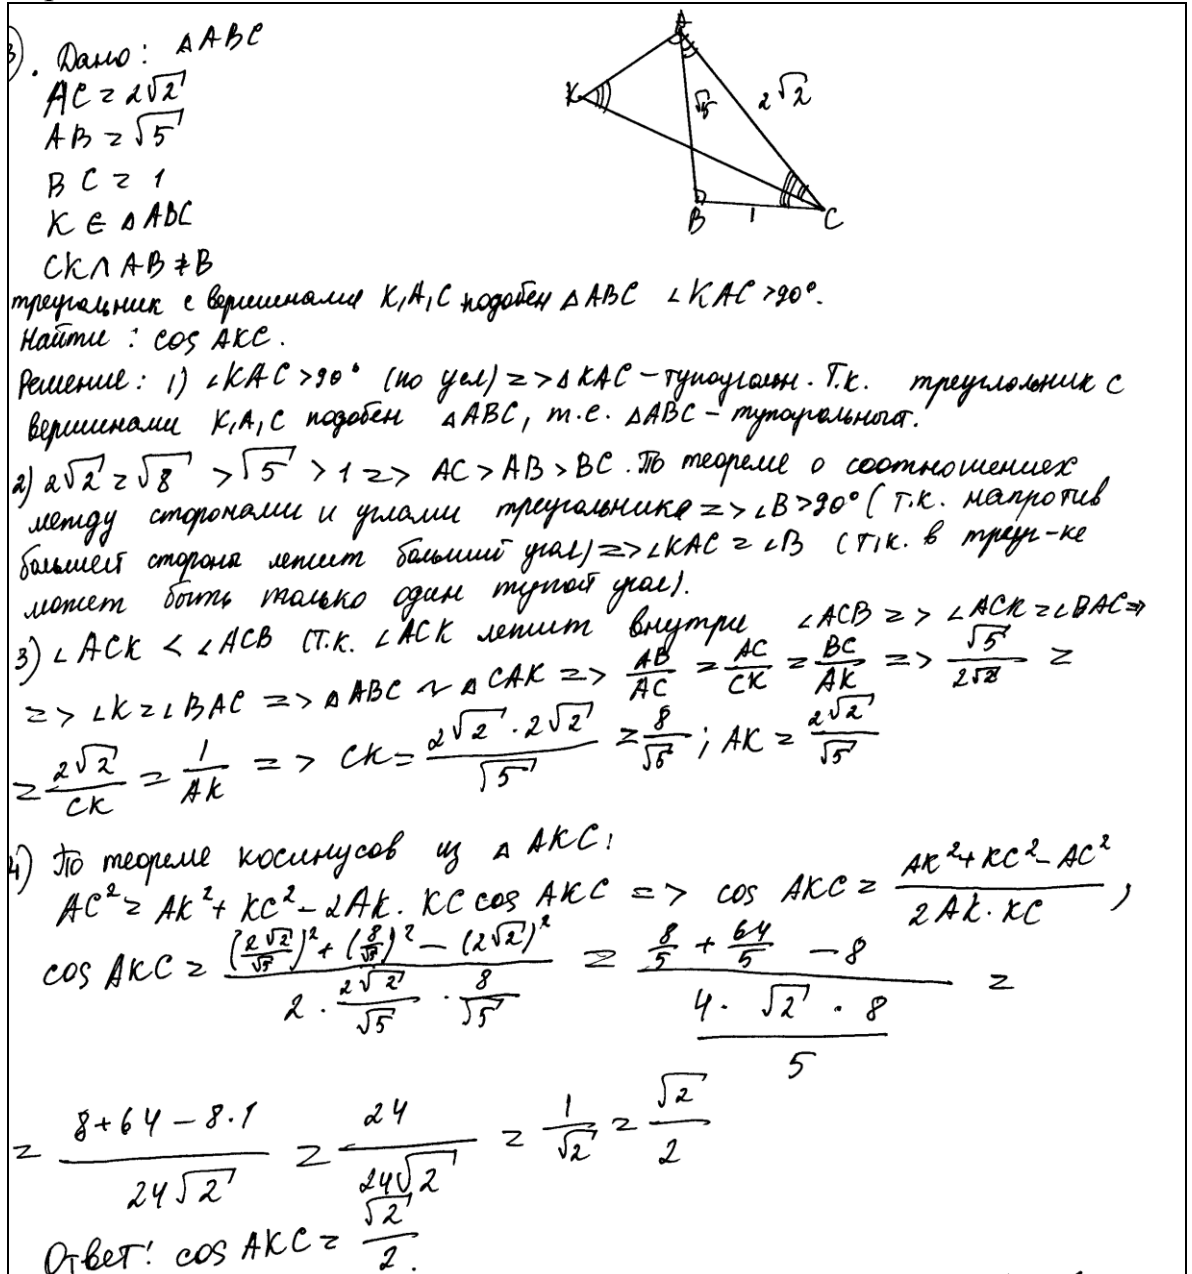 3). Дано: △ABC
AC = 2√2
AB = √5
BC = 1
K ∈ △ABC
CK ∩ AB ≠ B
A
K
√5
2√2
B
1
C
треугольник с вершинами K,A,C подобен △ABC ∠KAC >90°.
Найти : cos AKC.
Решение: 1) ∠KAC >90° (по усл) => △KAC – тупоуголн. Т.к. треуглольник с
вершинами K,A,C подобен △ABC, т.е. △ABC – тупоугольный.
2) 2√2 = √8 > √5 > 1 => AC > AB > BC. По теореме о соотношениях
между сторонами и углами треугольника => ∠B >90° (т.к. напротив
большей стороны лежит больший угол) => ∠KAC = ∠B (т.к. в треуг-ке
может быть только один тупой угол).
3) ∠ACK < ∠ACB (т.к. ∠ACK лежит внутри ∠ACB => ∠ACK = ∠BAC =>
=> ∠K = ∠BAC => △ABC ~ △CAK => AB/AC = AC/CK = BC/AK => √5/2√2 =
= 2√2/CK = 1/AK => CK = 2√2 · 2√2/√5 = 8/√5 ; AK = 2√2/√5
4) По теореме косинусов из △AKC:
AC² = AK² + KC² – 2AK · KC cos AKC => cos AKC = AK² + KC² – AC²/2AK · KC ,
cos AKC = (2√2/√5)² + (8/√5)² – (2√2)²/2 · 2√2/√5 · 8/√5 = 8/5 + 64/5 – 8/4 · √2 · 8/5 =
= 8+64 – 8·1/24√2 = 24/24√2 = 1/√2 = √2/2
Ответ: cos AKC = √2/2.